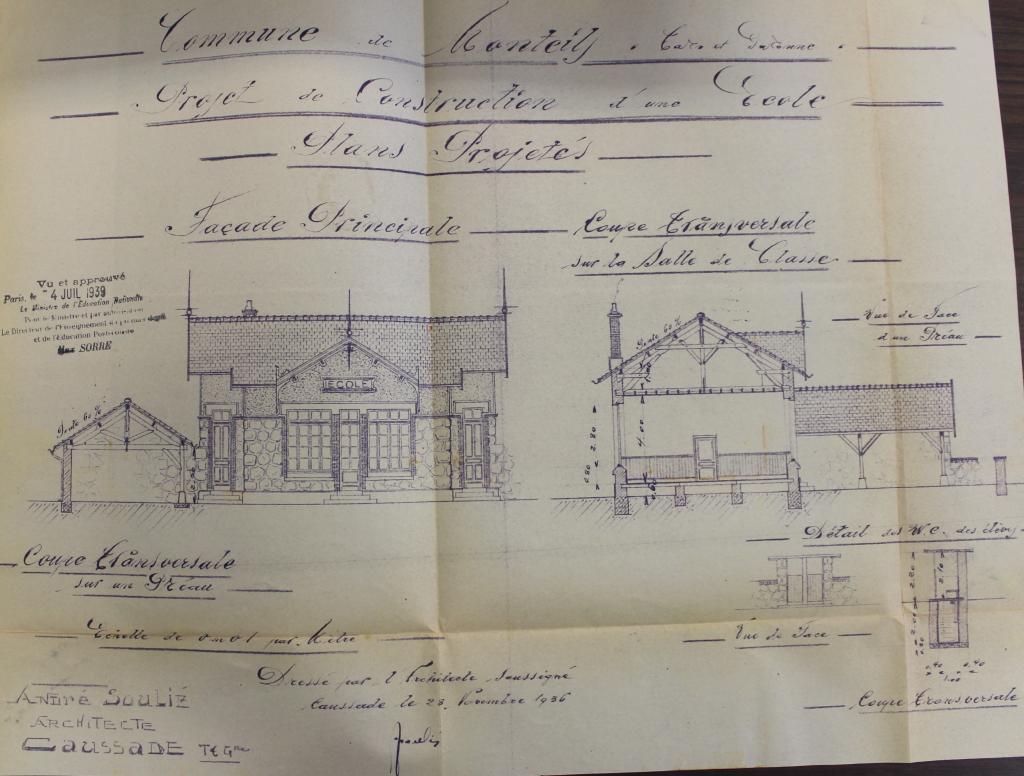 Commune de Monteils "Tarn et Garonne"
Projet de Construction d'une Ecole
Plans Projetés
Façade Principale
Coupe Transversale
sur la Salle de Classe
Vu et approuvé
Paris, le -4 JUIL 1939
Le Ministre de l'Education Nationale
Pour le Ministre et par autorisation
Le Directeur de l'Enseignement
et de l'Education Postscolaire
SORRE
Vue de Face
d'un Préau
Pente 60%
ECOLE
Pente 60%
2.80
4.00
Coupe Transversale
sur un Préau
Détail des W.C. des élèves
Vue de Face
0.40 0.40
1.00
Coupe Transversale
Echelle de 0m01 par Mètre
Dressé par l'Architecte soussigné
Caussade le 28 Novembre 1936
ANDRÉ SOULIÉ
ARCHITECTE
CAUSSADE T&Gne